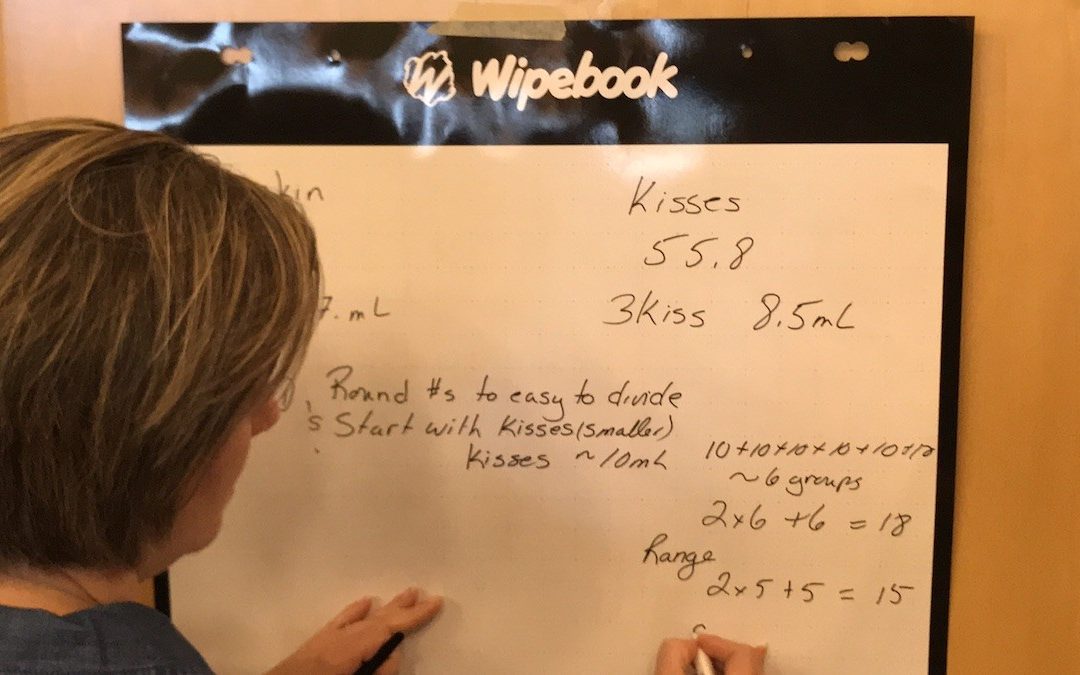 Wipebook
Kisses
55.8
7. mL
3Kiss 8.5mL
Round #s to easy to divide
Start with Kisses (smaller)
Kisses ~10mL
10+10+10+10+10+10
~6 groups
2x6 +6 = 18
Range
2x5 +5 = 15